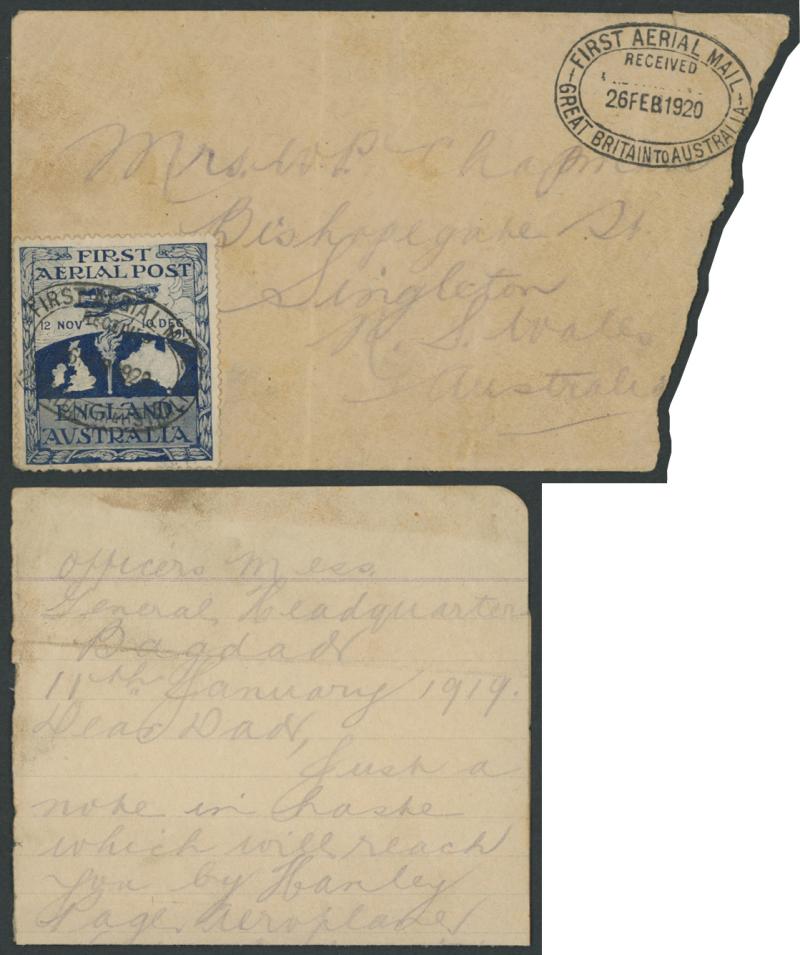 FIRST AERIAL MAIL
RECEIVED
26FEB1920
GREAT BRITAIN TO AUSTRALIA
Mrs. W P Chapman
Bishopsgate St.
Singleton
N. S. Wales
Australia
FIRST
AERIAL POST
12 NOV 10 DEC
1919
ENGLAND
AUSTRALIA
FIRST AERIAL MAIL
RECEIVED
1920
Officers Mess.
General Headquarters
Bagdad
11th January 1919.
Dear Dad,
Just a
note in haste
which will reach
you by Hanley
Page Aeroplane